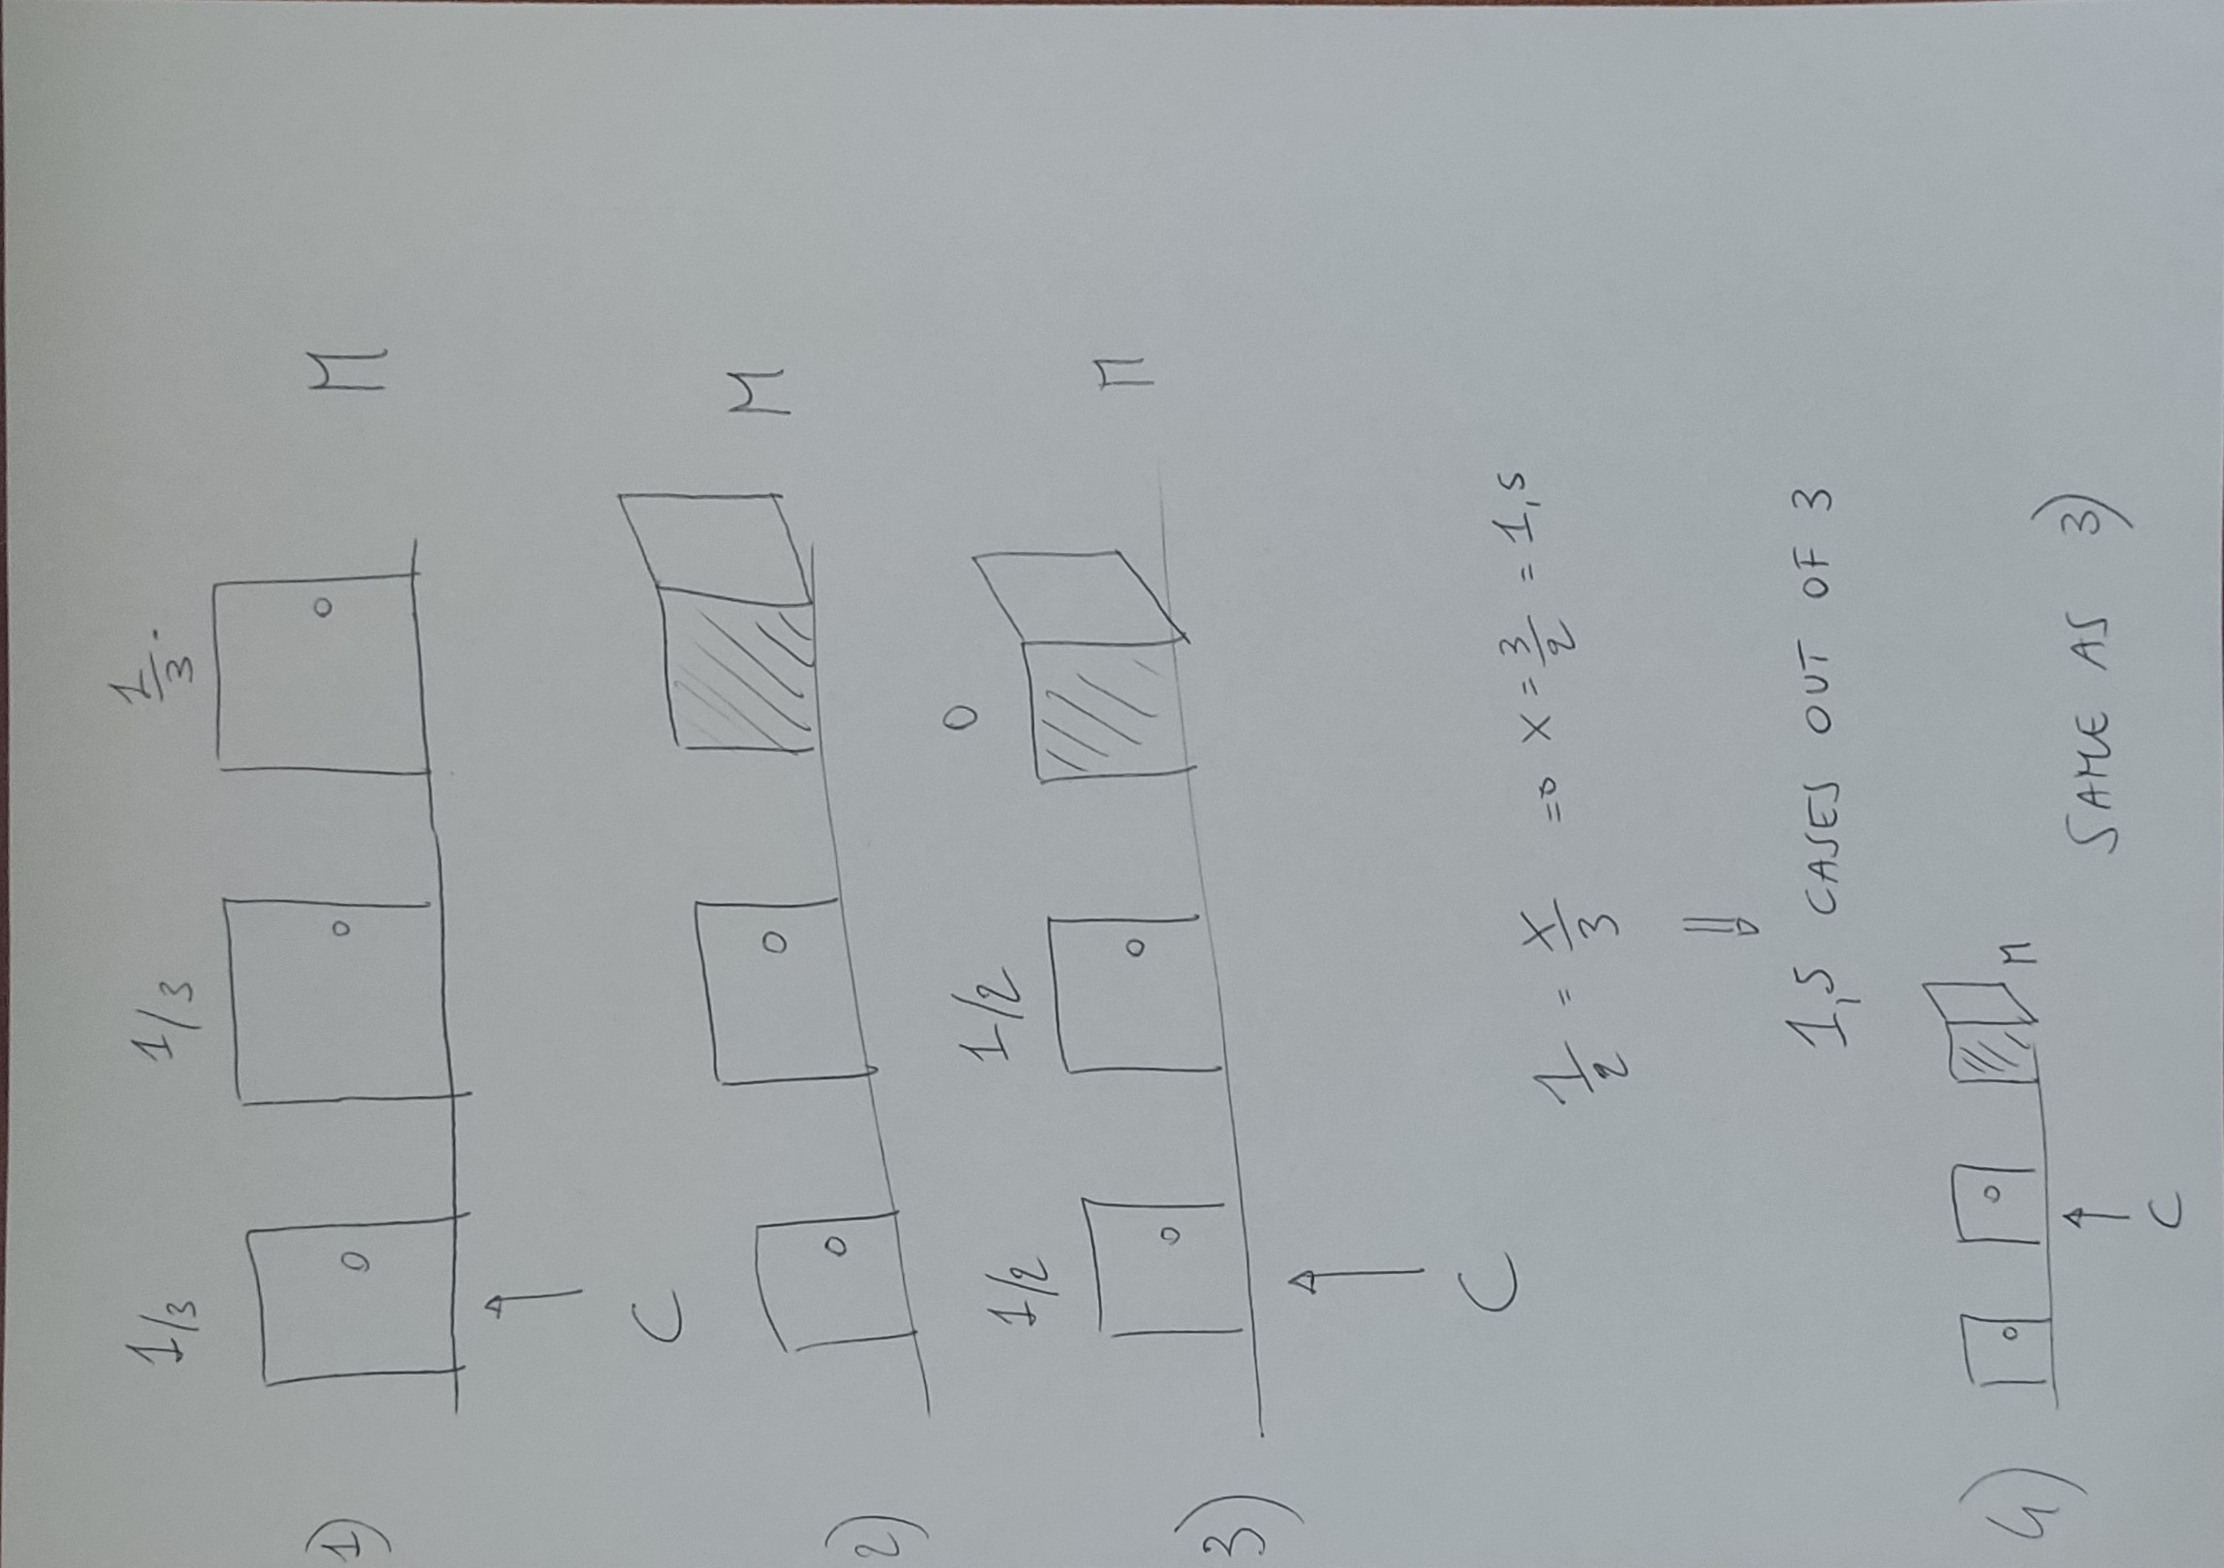 1/3 1/3 1/3.
1) M
C
M
2)
1/2 1/2 0
M
3)
C
1/2 = x/3 => x = 3/2 = 1,5
⇓
1,5 CASES OUT OF 3
4) M
SAME AS 3)
C